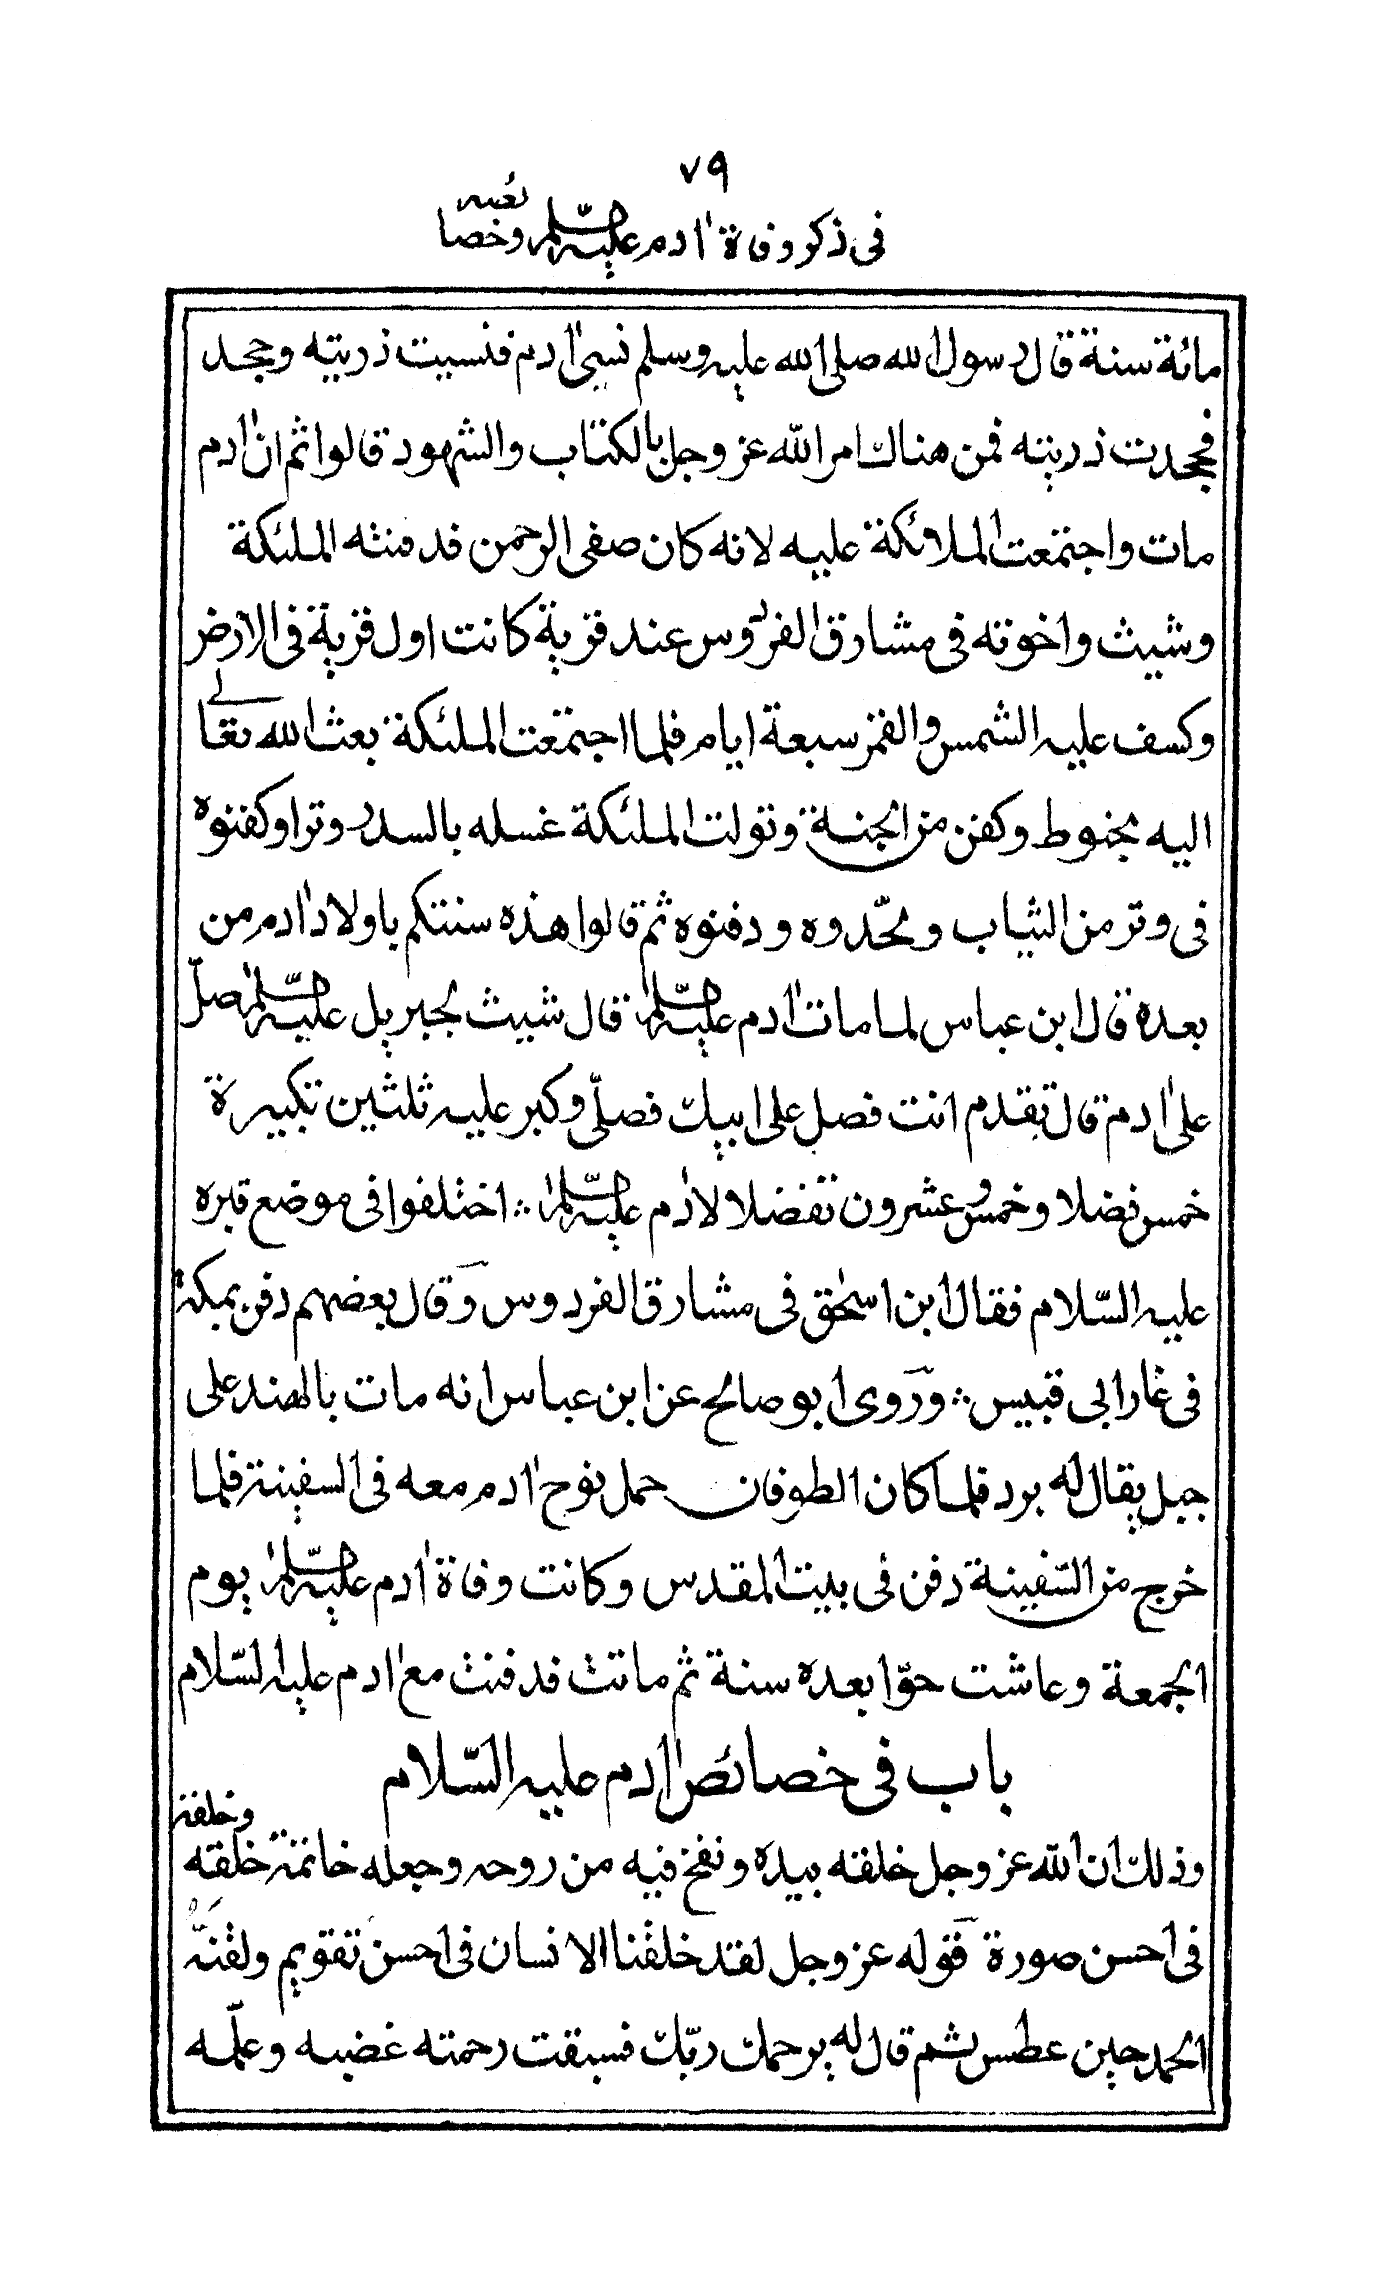 ٧٩
في ذكر وفاة اٰدم عليه السّلم وخصائصه
مائة سنة قال رسول الله صلى الله عليه وسلم نسي اٰدم فنسيت ذريته وجحد
فجحدت ذريته فمن هناك امر الله عز وجل بالكتاب والشهود قالوا ثم ان اٰدم
مات واجتمعت الملائكة عليه لانه كان صفي الرحمن فدفنته الملئكة
وشيث واخوته في مشارق الفردوس عند قرية كانت اول قرية في الارض
وكسف عليه الشمس والقمر سبعة ايام فلما اجتمعت الملئكة بعث الله تعالى
اليه بحنوط وكفن من الجنة وتولت الملئكة غسله بالسدر وترا وكفنوه
في وتر من الثياب ولحّدوه ودفنوه ثم قالوا هذه سنتكم ياولاد اٰدم من
بعده قال ابن عباس لما مات اٰدم عليه السّلم قال شيث لجبريل عليه السّلم صلّ
على اٰدم قال تقدم انت فصل على ابيك فصلّى وكبر عليه ثلثين تكبيرة
خمس فضلا وخمس وعشرون تفضلا لاٰدم عليه السّلم ؞ اختلفوا في موضع قبره
عليه السّلام فقال ابن اسحٰق في مشارق الفردوس وقال بعضهم دفن بمكة
في غار ابي قبيس ؞ وروى ابو صالح عن ابن عباس انه مات بالهند على
جبل يقال له برد فلما كان الطوفان حمل نوح اٰدم معه في السفينة فلما
خرج من السّفينة دفن في بيت المقدس وكانت وفاة اٰدم عليه السّلم يوم
الجمعة وعاشت حوّا بعده سنة ثم ماتت فدفنت مع اٰدم عليه السّلام
باب في خصائص اٰدم عليه السّلام
وذلك ان الله عز وجل خلقه بيده ونفخ فيه من روحه وجعله خاتمة خلقه وخلقه
في احسن صورة قوله عز وجل لقد خلقنا الانسان في احسن تقويم ولقنه
الحمد حين عطس ثم قال له يرحمك ربّك فسبقت رحمته غضبه وعلّمه